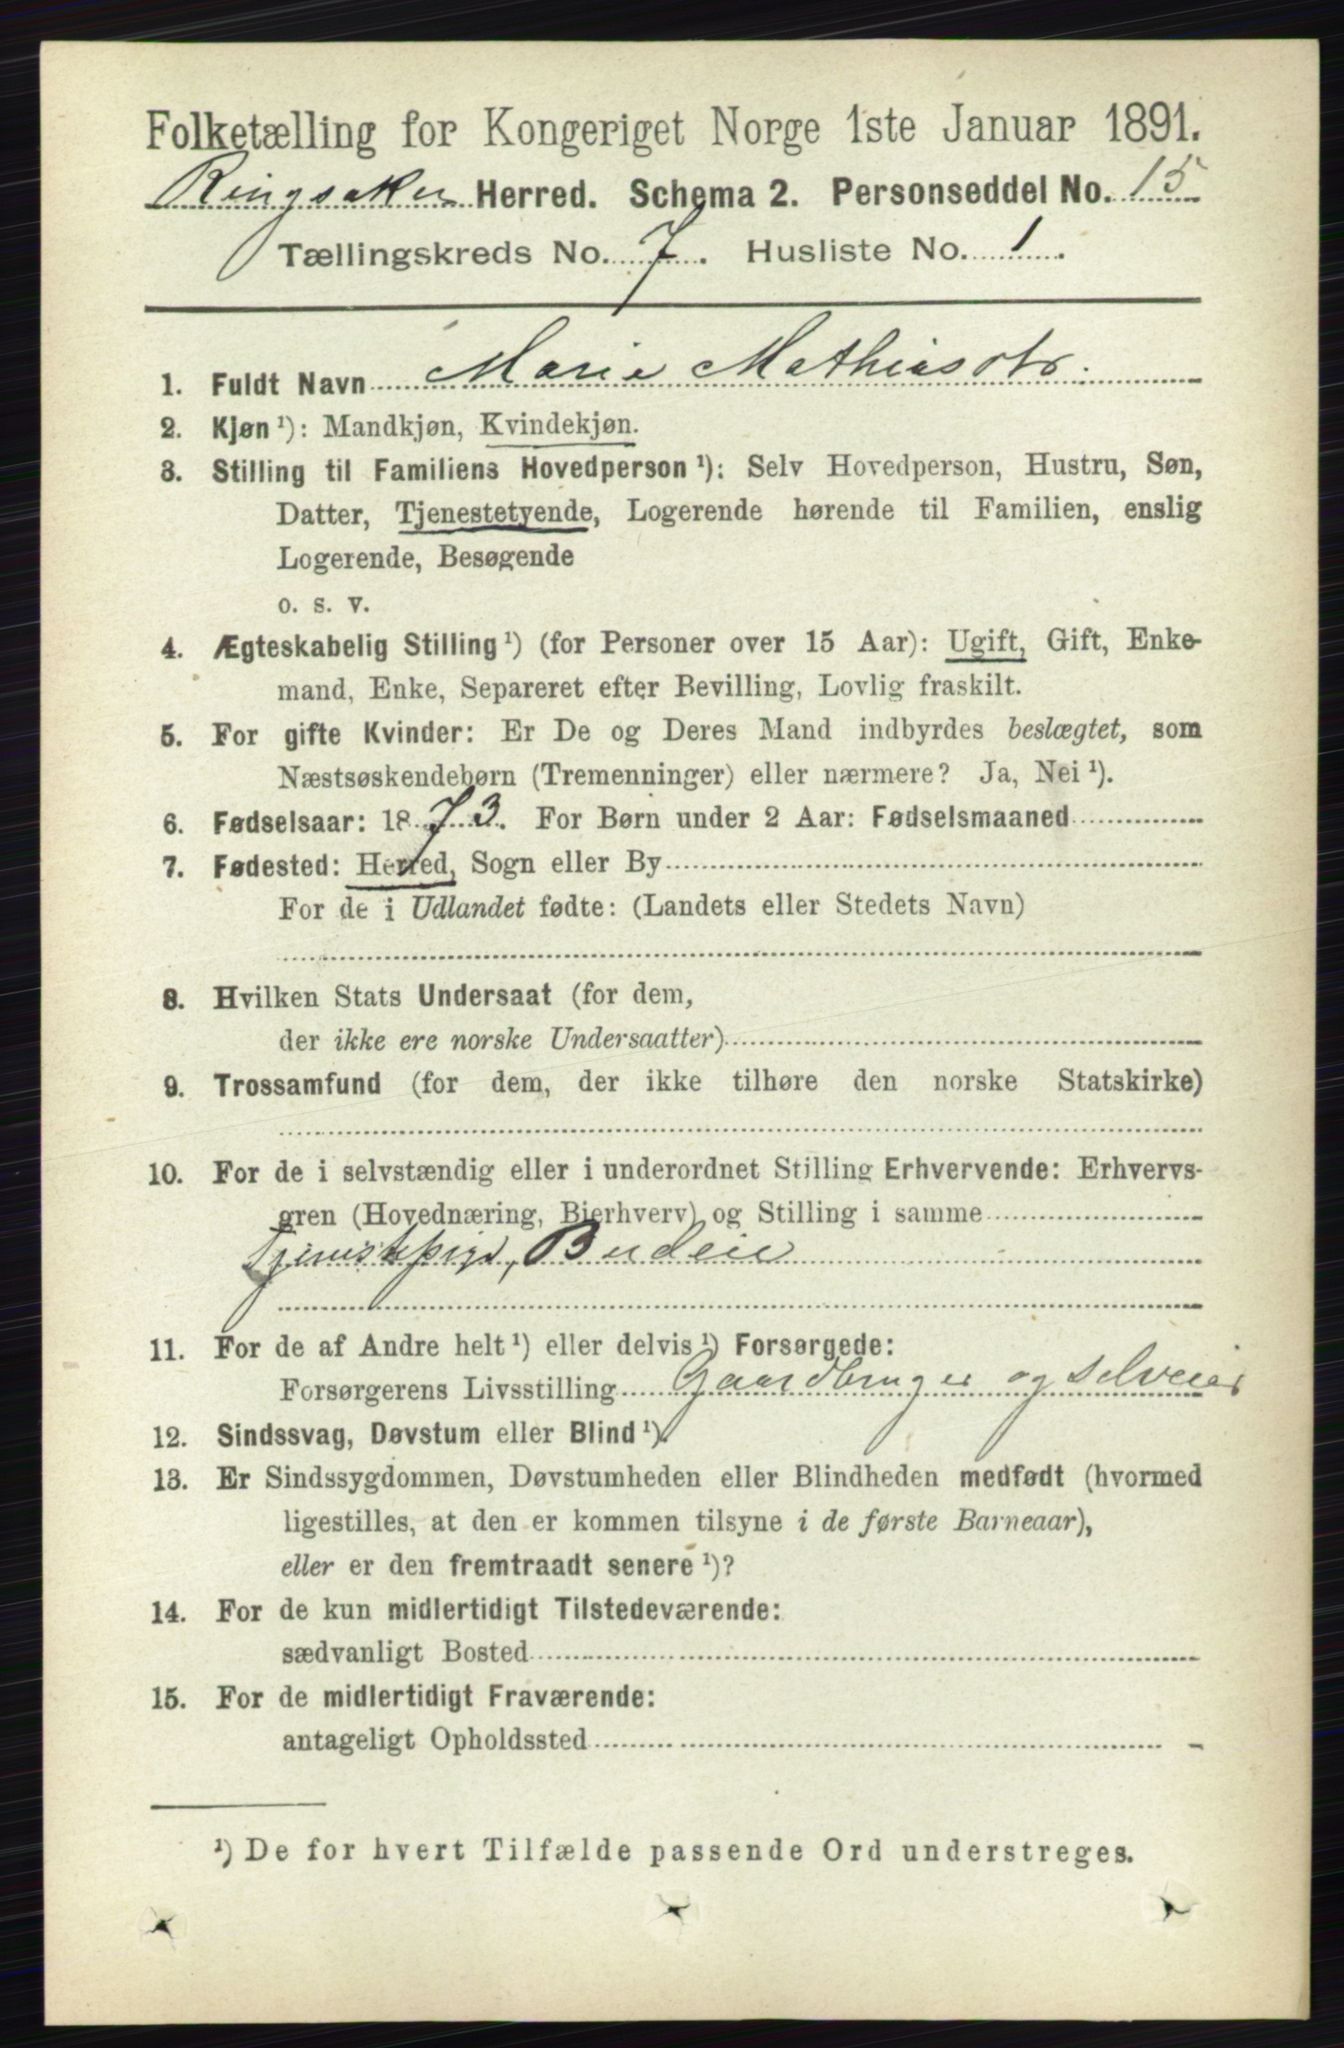 Folketælling for Kongeriget Norge 1ste Januar 1891.
Ringsaker Herred. Schema 2. Personseddel No. 15
Tællingskreds No. 7. Husliste No. 1.
1. Fuldt Navn Marie Mathiasdtr.
2. Kjøn ¹): Mandkjøn, Kvindekjøn.
3. Stilling til Familiens Hovedperson ¹): Selv Hovedperson, Hustru, Søn,
Datter, Tjenestetyende, Logerende hørende til Familien, enslig
Logerende, Besøgende
o. s. v.
4. Ægteskabelig Stilling ¹) (for Personer over 15 Aar): Ugift, Gift, Enke-
mand, Enke, Separeret efter Bevilling, Lovlig fraskilt.
5. For gifte Kvinder: Er De og Deres Mand indbyrdes beslægtet, som
Næstsøskendebørn (Tremenninger) eller nærmere? Ja, Nei ¹).
6. Fødselsaar: 1873. For Børn under 2 Aar: Fødselsmaaned
7. Fødested: Herred, Sogn eller By
For de i Udlandet fødte: (Landets eller Stedets Navn)
8. Hvilken Stats Undersaat (for dem,
der ikke ere norske Undersaatter)
9. Trossamfund (for dem, der ikke tilhøre den norske Statskirke)
10. For de i selvstændig eller i underordnet Stilling Erhvervende: Erhvervs-
gren (Hovednæring, Bierhverv) og Stilling i samme
Tjenstepige, Budeie
11. For de af Andre helt ¹) eller delvis ¹) Forsørgede:
Forsørgerens Livsstilling Gaardbruger og selveier
12. Sindssvag, Døvstum eller Blind ¹).
13. Er Sindssygdommen, Døvstumheden eller Blindheden medfødt (hvormed
ligestilles, at den er kommen tilsyne i de første Barneaar),
eller er den fremtraadt senere ¹)?
14. For de kun midlertidigt Tilstedeværende:
sædvanligt Bosted
15. For de midlertidigt Fraværende:
antageligt Opholdssted
¹) De for hvert Tilfælde passende Ord understreges.